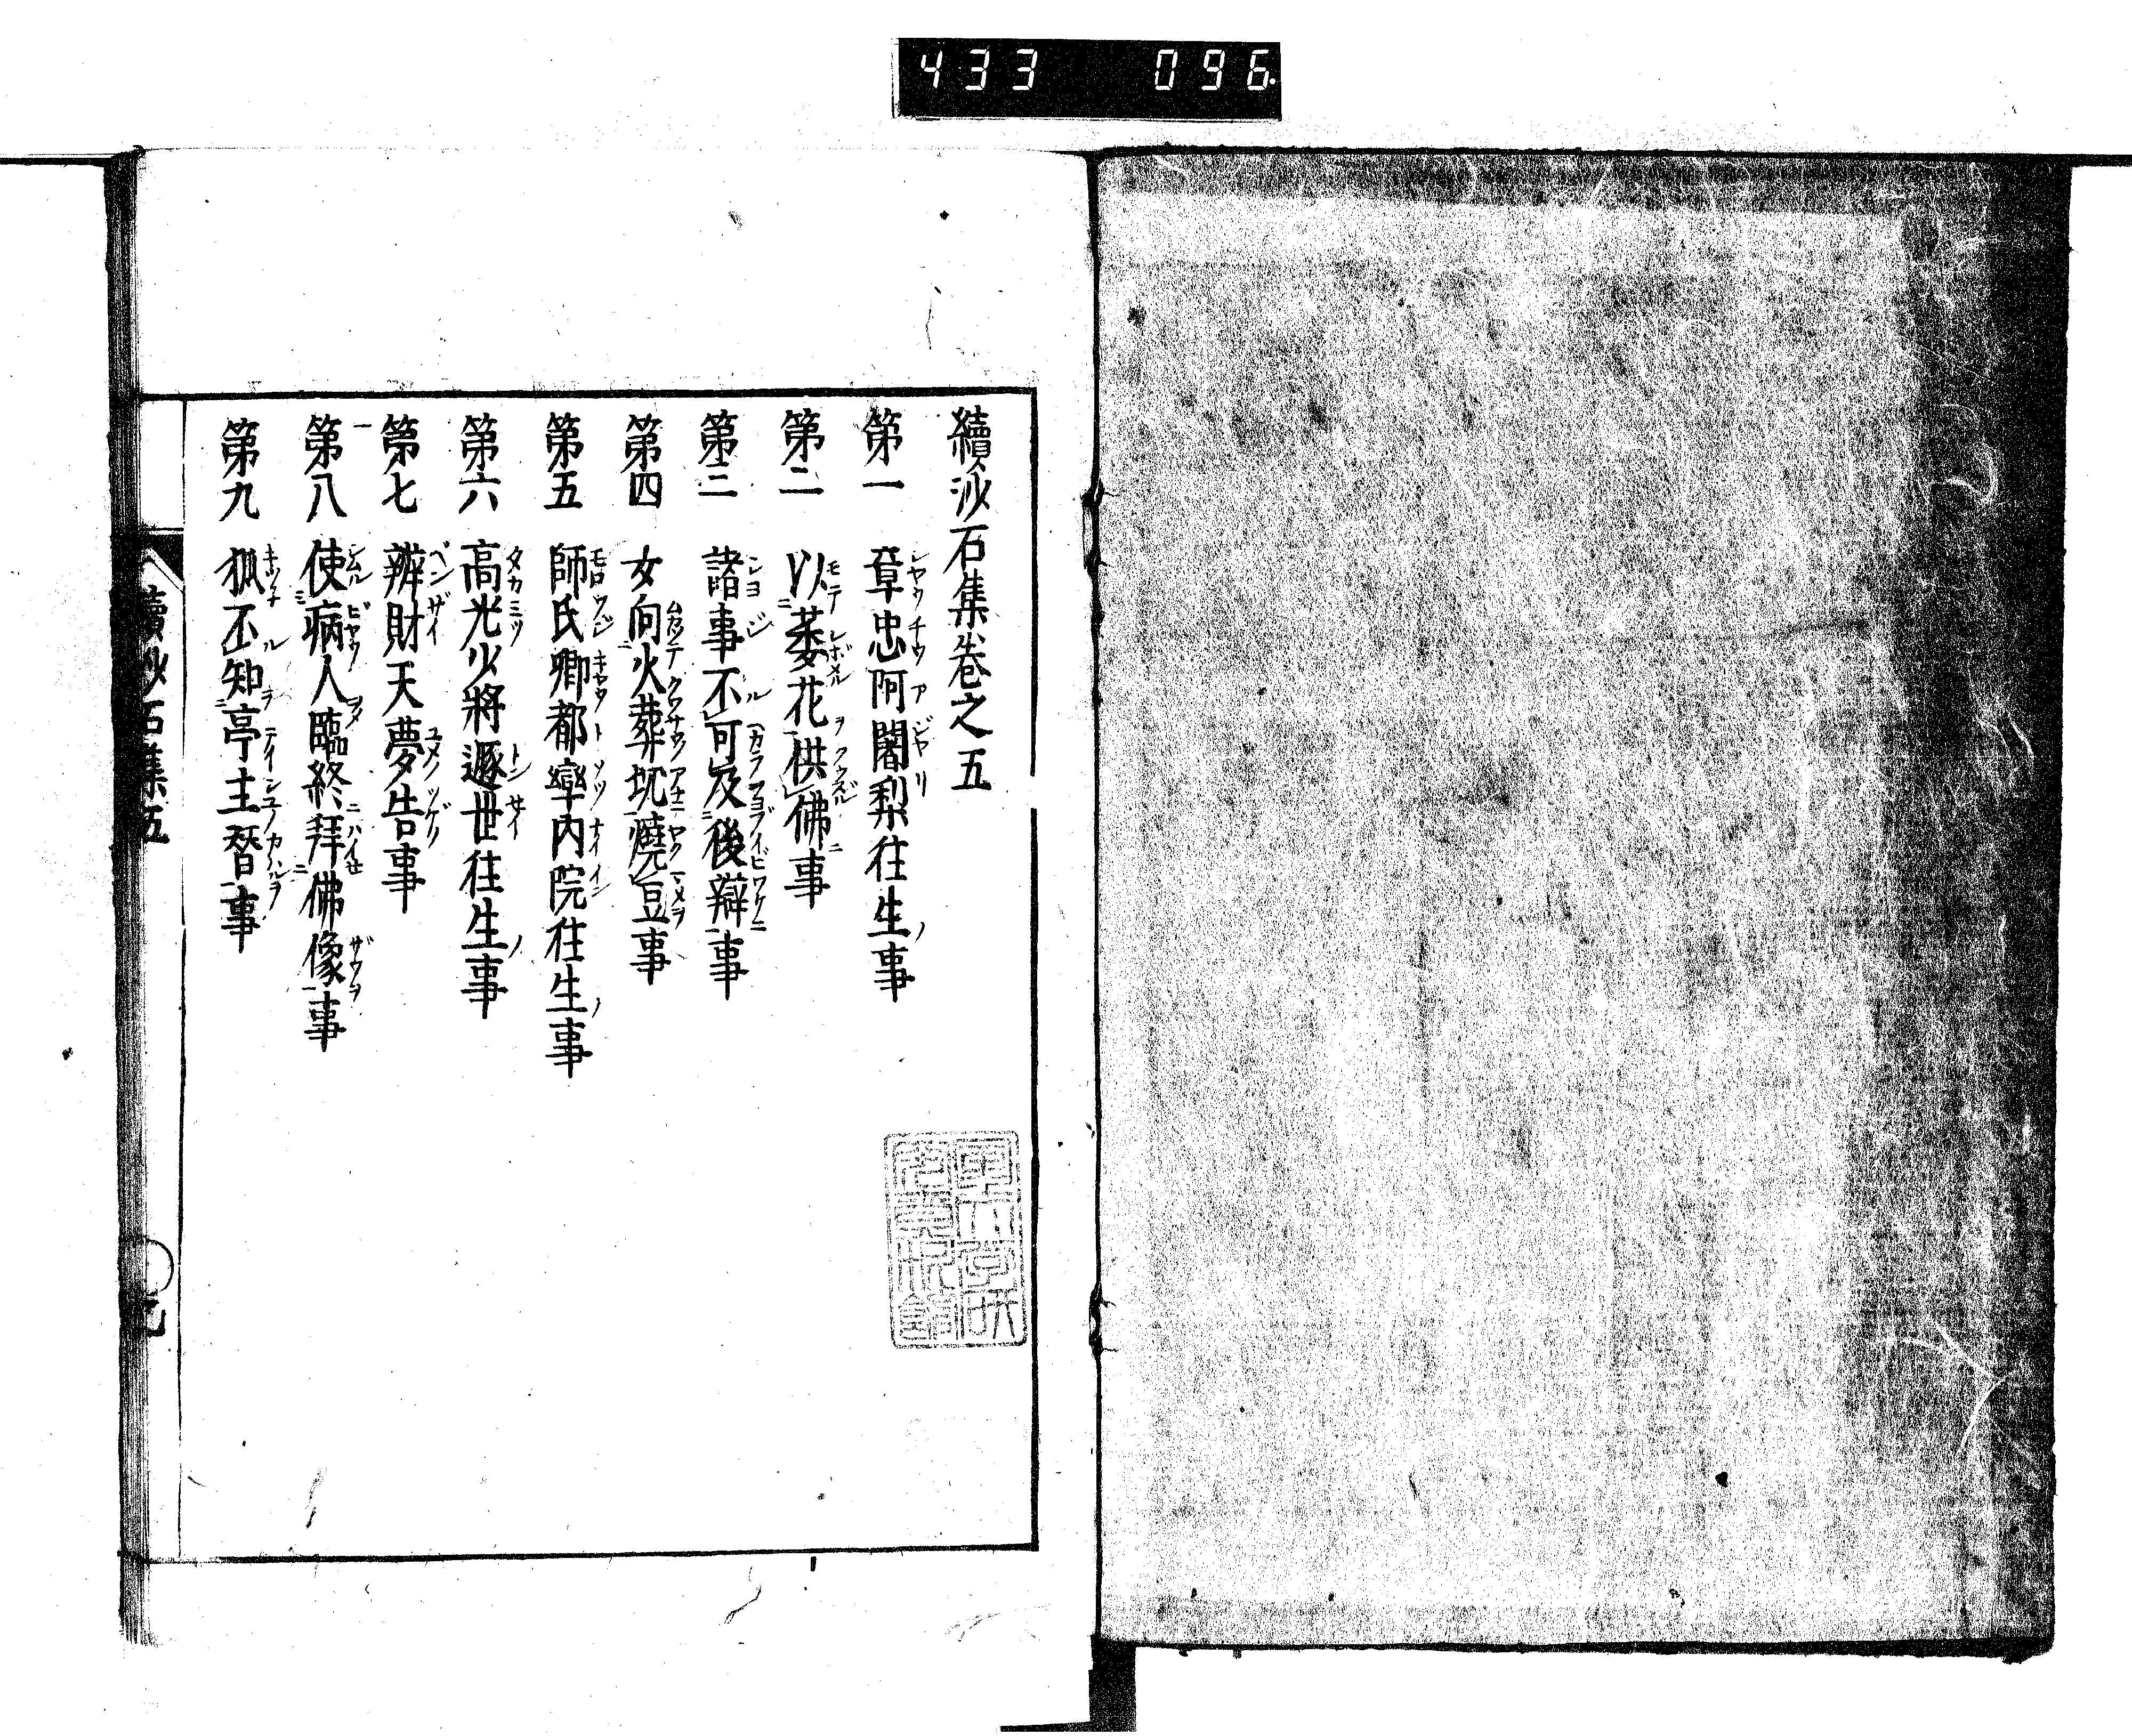 433 096
續沙石集卷之五
第一 章忠阿闍梨往生ノ事
第二 以萎花供佛事
第三 諸事不可及後辯事
第四 女向火葬坑燒豆事
第五 師氏卿都率内院往生ノ事
第六 高光少將遯世往生ノ事
第七 辨財天夢告事
第八 使病人臨終拜佛像事
第九 狐不知亭主替事
續沙石集五